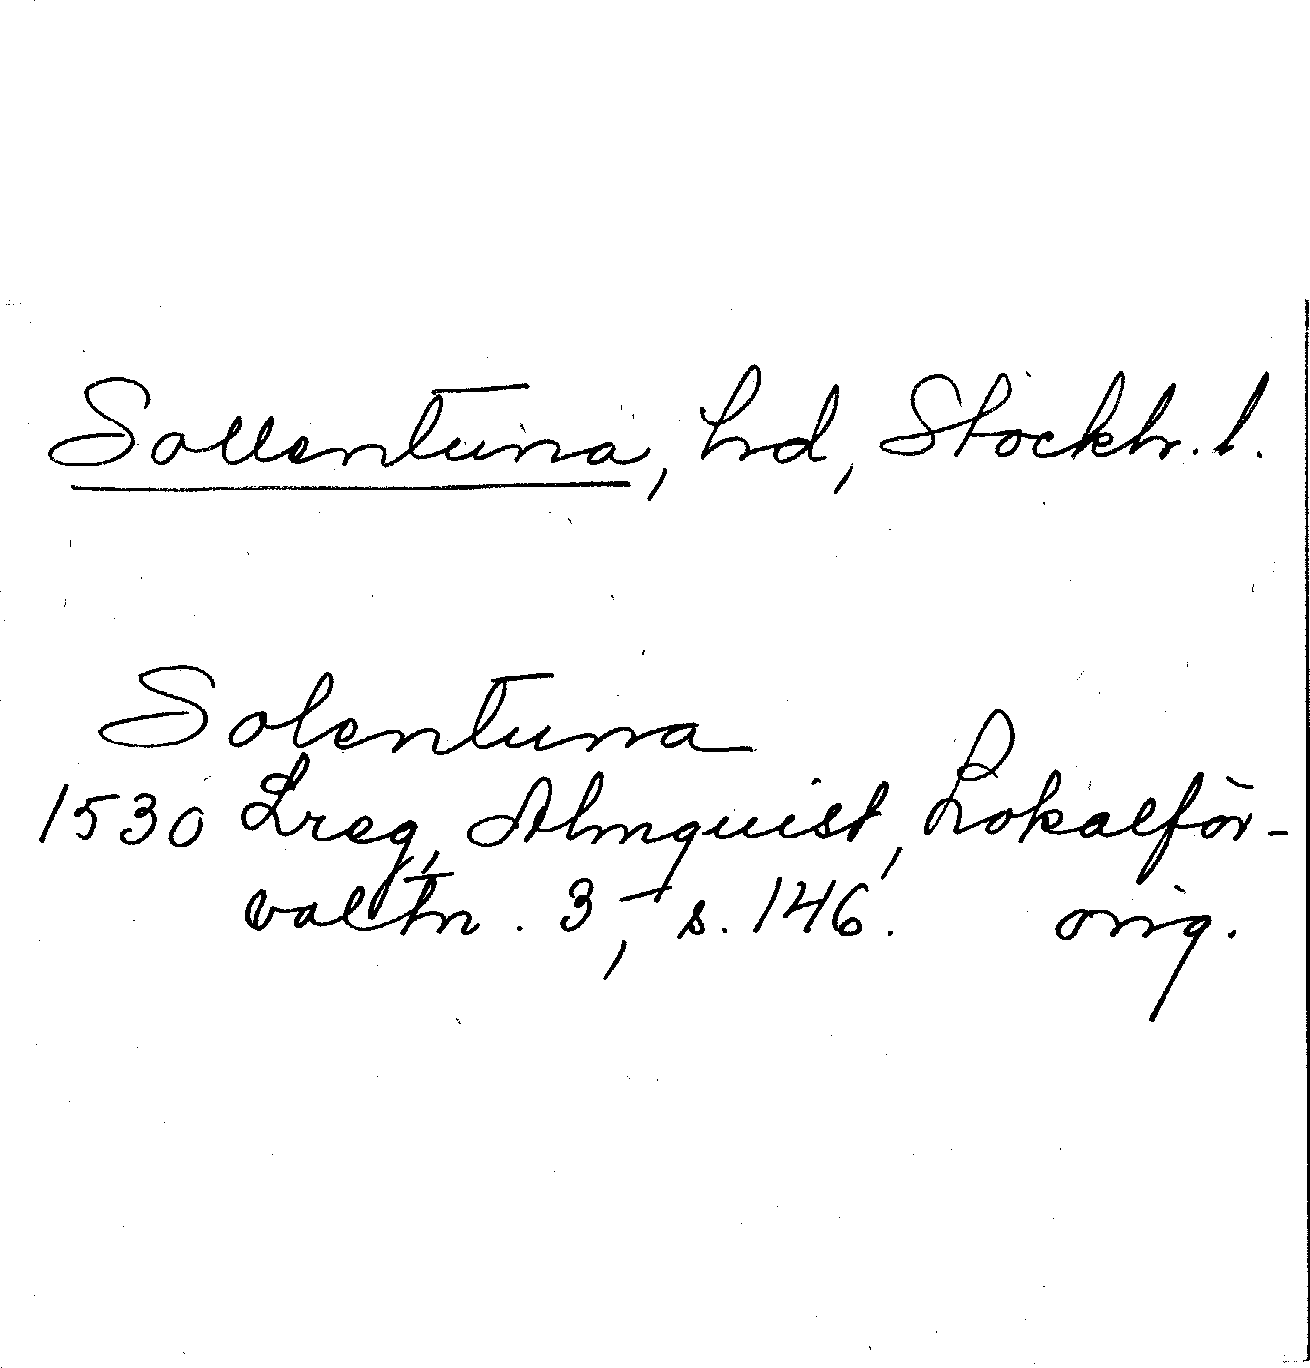 Sollentuna, hd, Stockh. l.
Solentuna
1530 Lreg, Almquist, Lokalför-
valtn. 3, s. 146. orig.